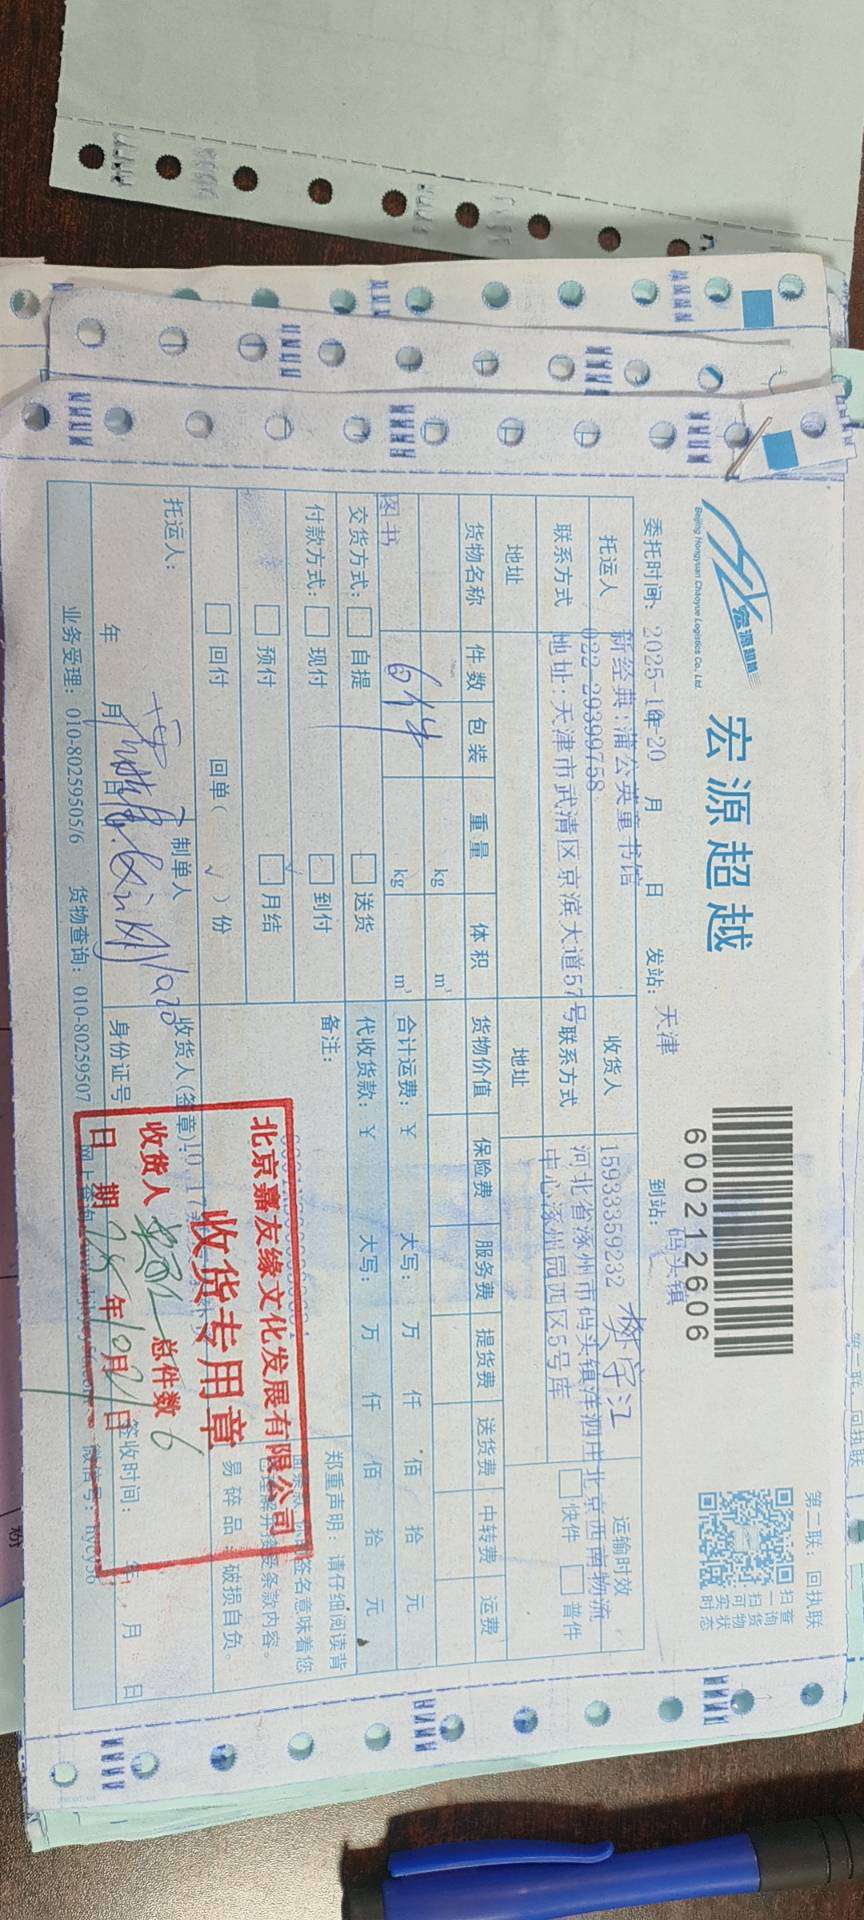 宏源超越
宏源超越
Beijing Hongyuan Chaoyue Logistics Co., Ltd.
600212606
第二联：回执联
扫一扫可实时
查询货物状态
委托时间：2025-10-20 年 月 日 发站：天津 到站：码头镇
托运人 新经典:蒲公英童书馆 收货人 15933359232 樊守江 运输时效
联系方式 022-29399758 联系方式 河北省涿州市码头镇洋泗庄北京西南物流 快件 普件
地址 地址:天津市武清区京滨大道57号 地址 中心涿州园西区5号库
货物名称 件数 包装 重量 体积 货物价值 保险费 服务费 提货费 送货费 中转费 运费
kg m³
图书 6件 kg m³ 合计运费：¥ 大写： 万 仟 佰 拾 元
交货方式： 自提 送货 代收货款：¥ 大写： 万 仟 佰 拾 元
付款方式： 现付 到付 备注： 郑重声明：请仔细阅读背
签名意味着您
预付 月结 √ 接受条款内容。
回付 回单（ √ ）份 易碎品：破损自负。
托运人： 制单人 收货人(签章)：
年 月 日 身份证号 签收时间： 年 月 日
业务受理：010-80259505/6 货物查询：010-80259507 网上查询 微信号：hycy56
北京嘉友缘文化发展有限公司
收货专用章
收货人 总件数 6
日期 25年10月21日